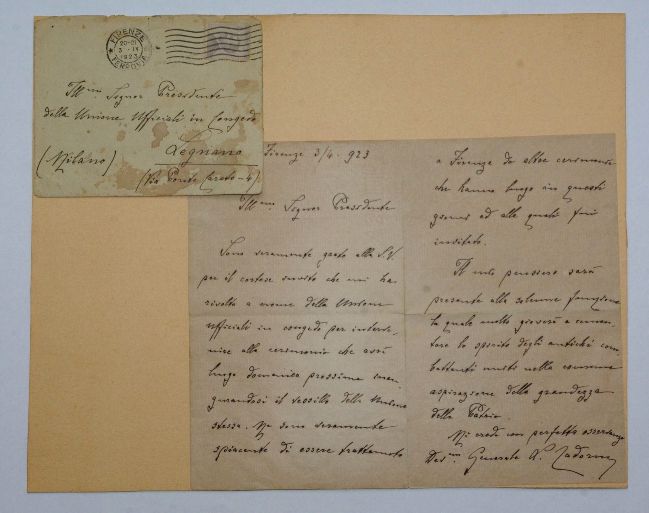 FIRENZE
20-21
3-IV
1923
FERROVIA
Ill.mo Signor Presidente
della Unione Ufficiali in Congedo
Legnano
(Milano)
(Via Ponte Carato - 4)
Firenze 3/4. 923
Ill.mo Signor Presidente
Sono veramente grato alla S.V.
per il cortese invito che mi ha
rivolto a nome della Unione
Ufficiali in congedo per interve-
nire alla cerimonia che avrà
luogo domenica prossima inau-
gurandosi il vessillo della Unione
stessa. Ma sono veramente
spiacente di essere trattenuto
a Firenze da altre cerimonie
che hanno luogo in questi
giorni ed alle quali fui
invitato.
Il mio pensiero sarà
presente alla solenne funzione
la quale molto gioverà a cemen-
tare lo spirito degli antichi com-
battenti uniti nella comune
aspirazione della grandezza
della Patria.
Mi creda con perfetta osservanza
Dev.mo Generale L. Cadorna